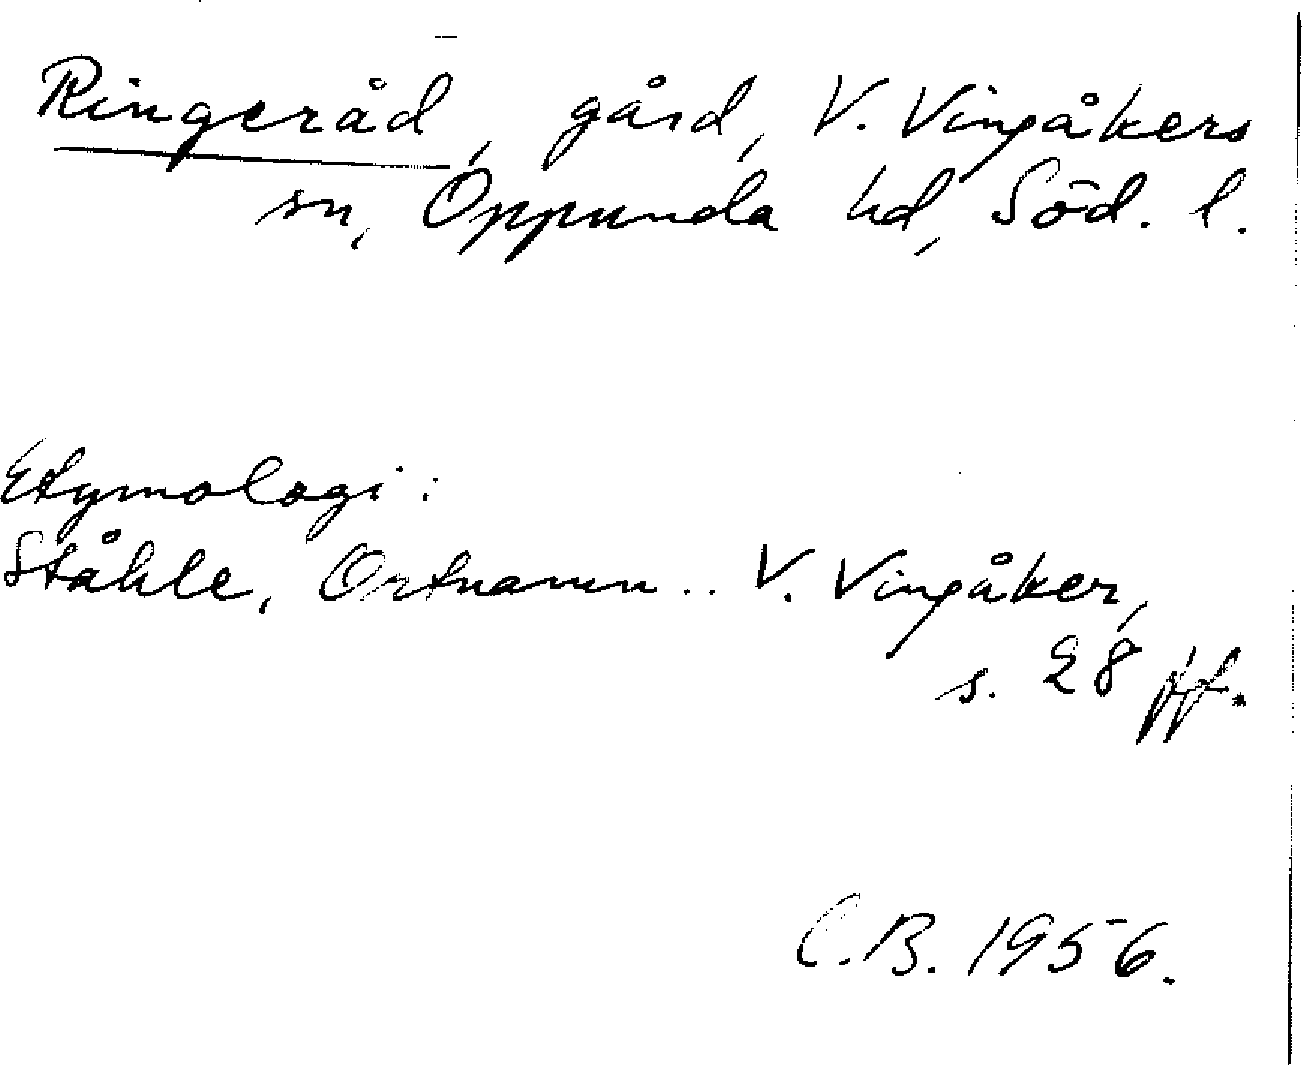 Ringeråd, gård, V. Vingåkers
sn, Oppunda hd, Söd. l.
Etymologi:
Ståhle, Ortnamn.. V. Vingåker,
s. 28 ff.
C.B. 1956.